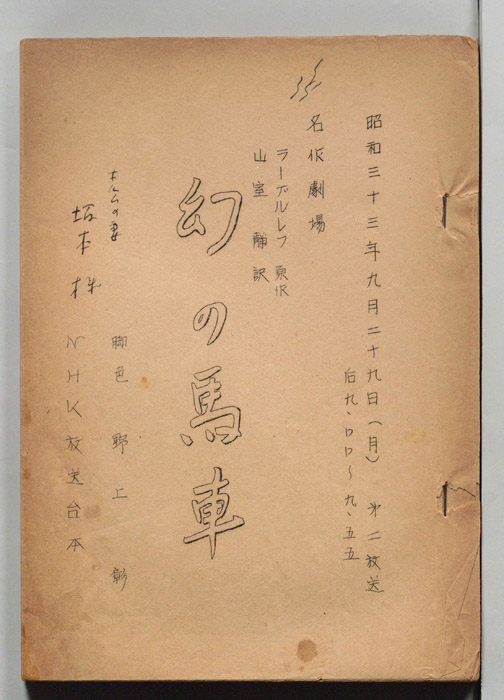 昭和三十三年九月二十九日(月) 第二放送
后九、〇〇〜九、五五
名作劇場
ラーゲルレフ 原作
山室 静 訳
幻の馬車
脚色 野上 彰
ホルムの妻
NHK放送台本